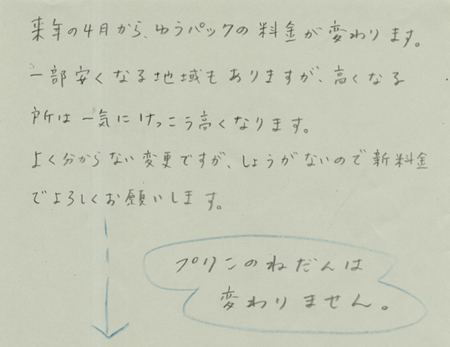 来年の4月から、ゆうパックの料金が変わります。
一部安くなる地域もありますが、高くなる
所は一気にけっこう高くなります。
よく分からない変更ですが、しょうがないので新料金
でよろしくお願いします。
プリンのねだんは
変わりません。